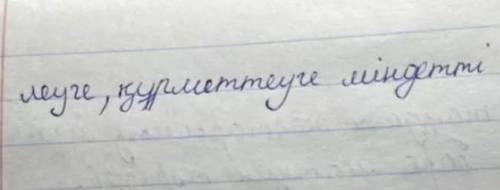 леуге, құрметтеуге міндетті